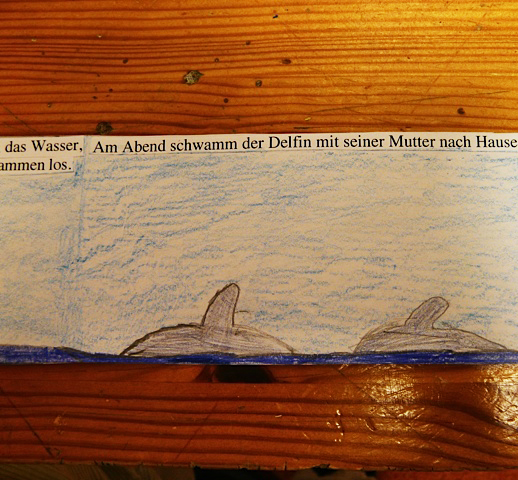 das Wasser,
ammen los.
Am Abend schwamm der Delfin mit seiner Mutter nach Hause